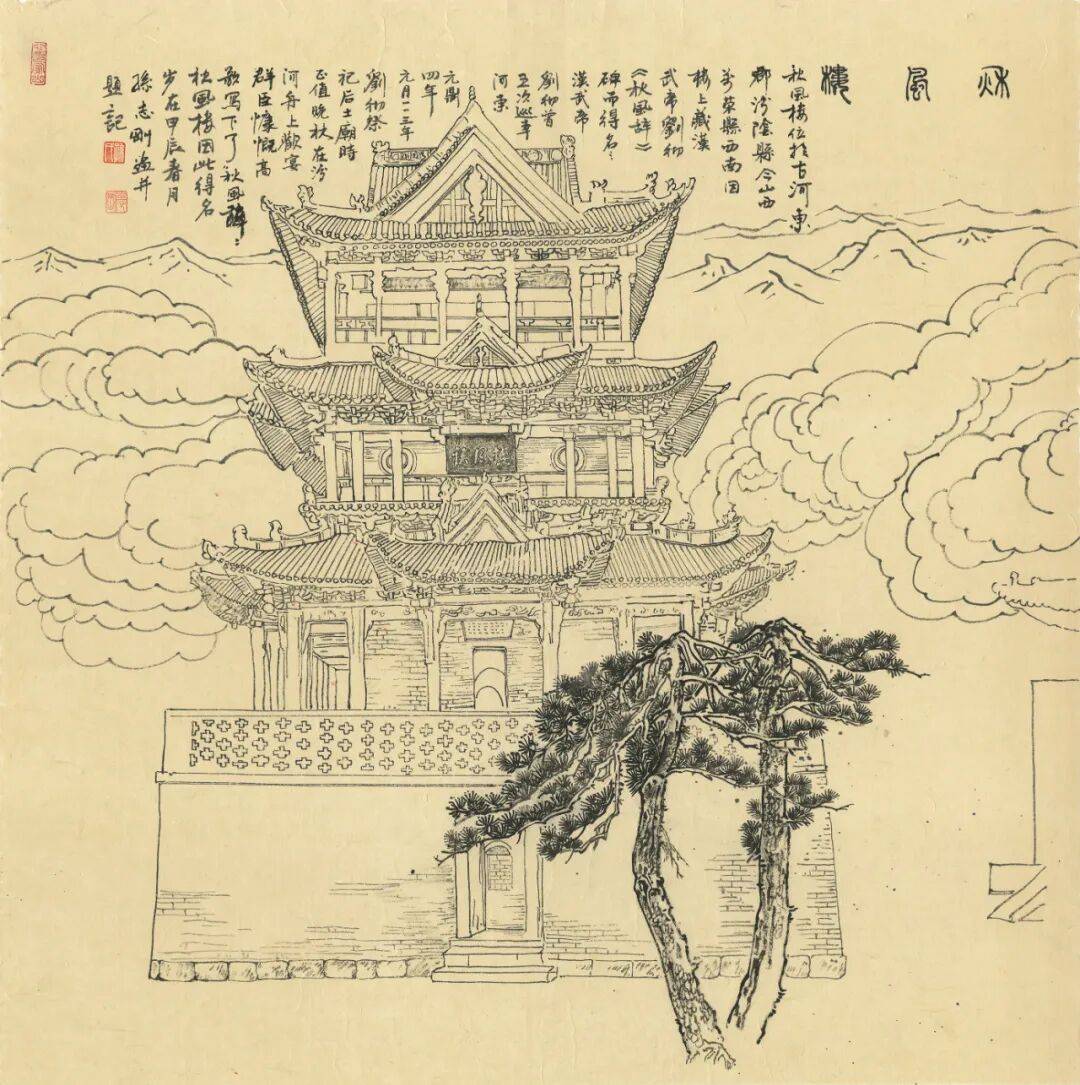 秌風樓
秋風樓位於古河東
郡汾陰縣今山西
萬荣縣西南因
樓上藏漢
武帝劉彻
《秋風辞》
碑而得名:
漢武帝
劉彻曾
五次巡幸
河東
元鼎
四年
元月一一三年
劉彻祭
祀后土廟時
正值晚秋在汾
河舟上歡宴
群臣慷慨高
歌写下了秋風辭:
秋風樓因此得名
岁在甲辰春月
孫志剛画并
題記